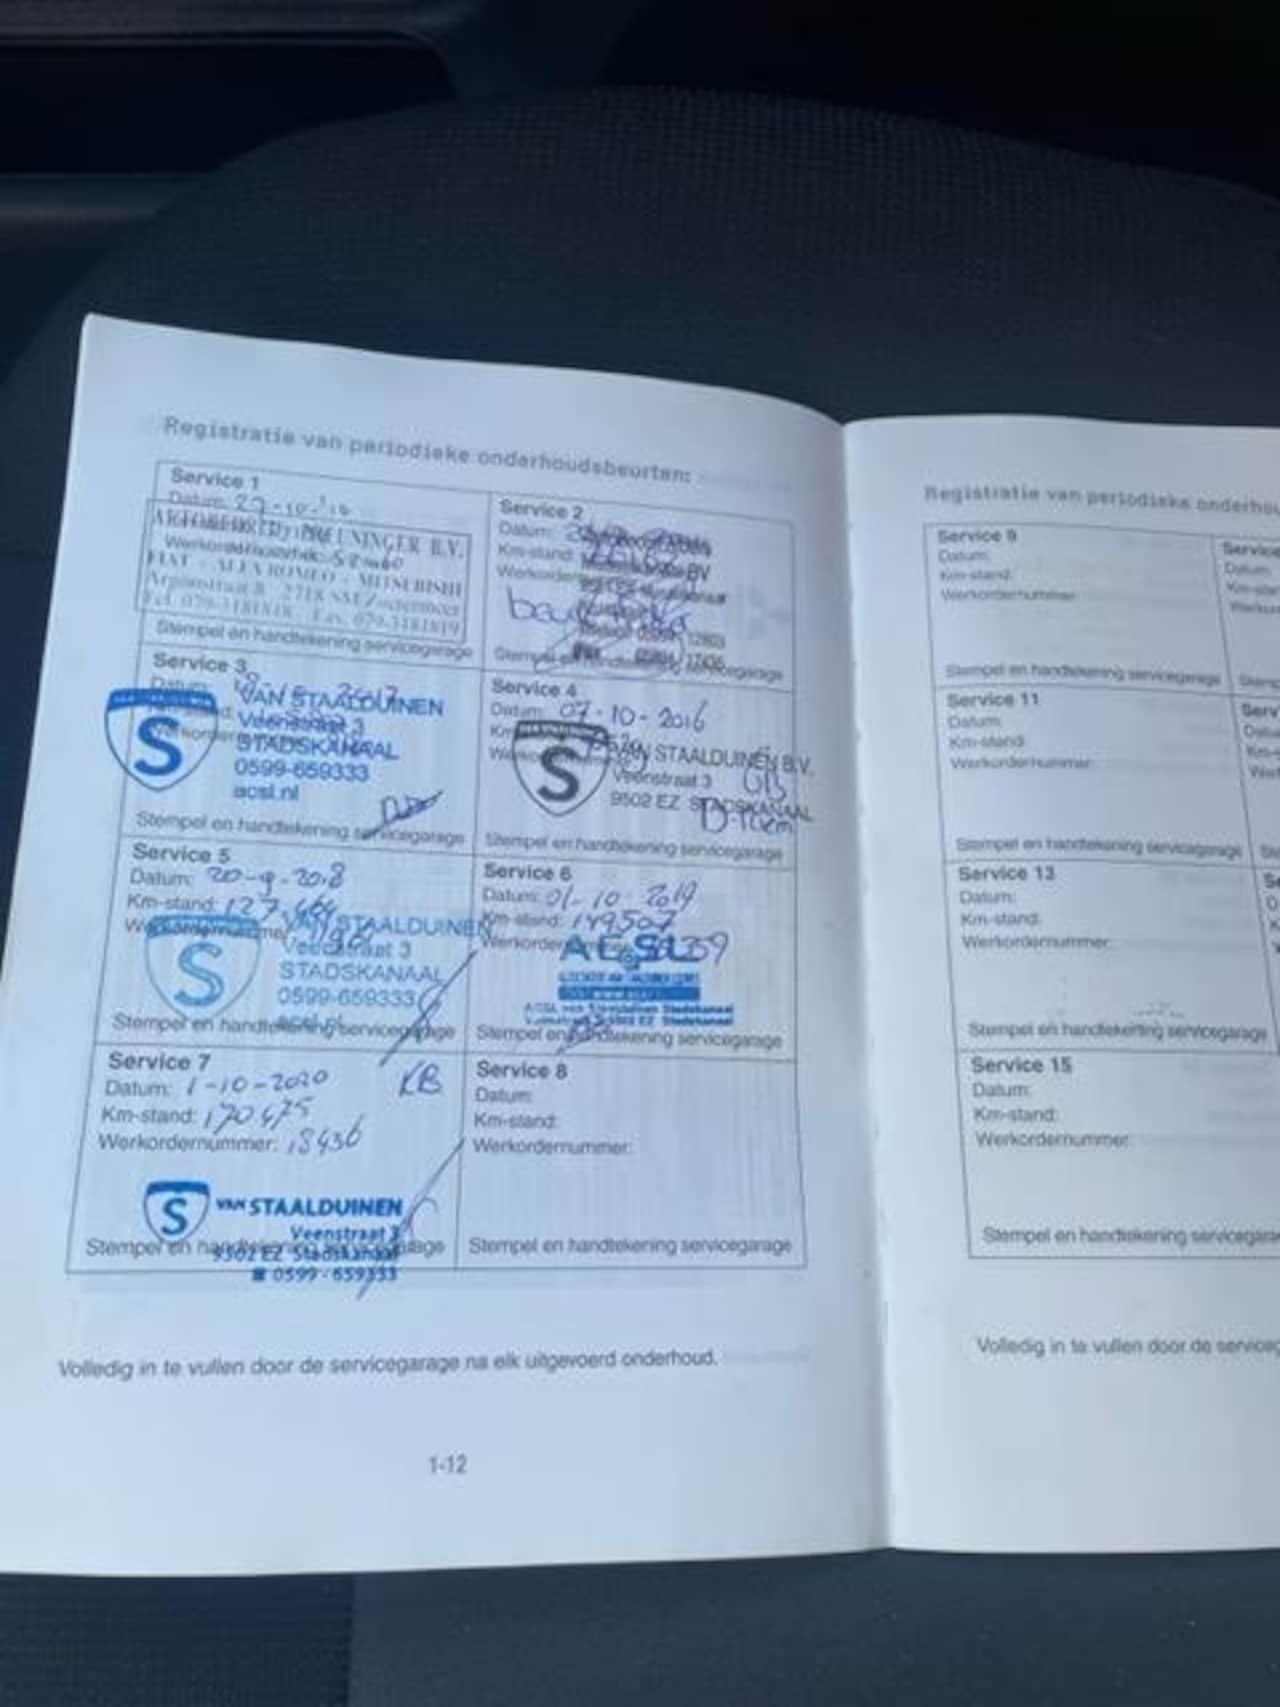 Registratie van periodieke onderhoudsbeurten:
Service 1
Datum: 27-10-
NINGER B.V.
FIAT - ALFA ROMEO - MITSUBISHI
Tel. 079-3181818 - Fax. 079-3181819
Stempel en handtekening servicegarage
Service 2
Datum:
Km-stand:
BV
Stempel en handtekening servicegarage
Service 3
Datum:
VAN STAALDUINEN
Veenstraat 3
STADSKANAAL
0599-659333
acsl.nl
S
Stempel en handtekening servicegarage
Service 4
Datum: 07-10-2016
VAN STAALDUINEN B.V.
Veenstraat 3
9502 EZ STADSKANAAL
S
Stempel en handtekening servicegarage
Service 5
Datum: 20-9-2018
Km-stand:
Werkordernummer:
VAN STAALDUINEN
Veenstraat 3
STADSKANAAL
0599-659333
acsl.nl
S
Stempel en handtekening servicegarage
Service 6
Datum: 01-10-2019
Km-stand: 149507
ACSL
Stempel en handtekening servicegarage
Service 7
Datum: 1-10-2020
KB
Km-stand: 170475
Werkordernummer: 18436
S
VAN STAALDUINEN
Veenstraat 3
9502 EZ Stadskanaal
☎ 0599-659333
Stempel en handtekening servicegarage
Service 8
Datum:
Km-stand:
Werkordernummer:
Stempel en handtekening servicegarage
Volledig in te vullen door de servicegarage na elk uitgevoerd onderhoud.
1-12
Registratie van periodieke onderhou
Service 9
Datum:
Km-stand:
Werkordernummer:
Stempel en handtekening servicegarage
Service 11
Datum:
Km-stand:
Werkordernummer:
Stempel en handtekening servicegarage
Service 13
Datum:
Km-stand:
Werkordernummer:
Stempel en handtekening servicegarage
Service 15
Datum:
Km-stand:
Werkordernummer:
Stempel en handtekening servicegara
Volledig in te vullen door de serviceg